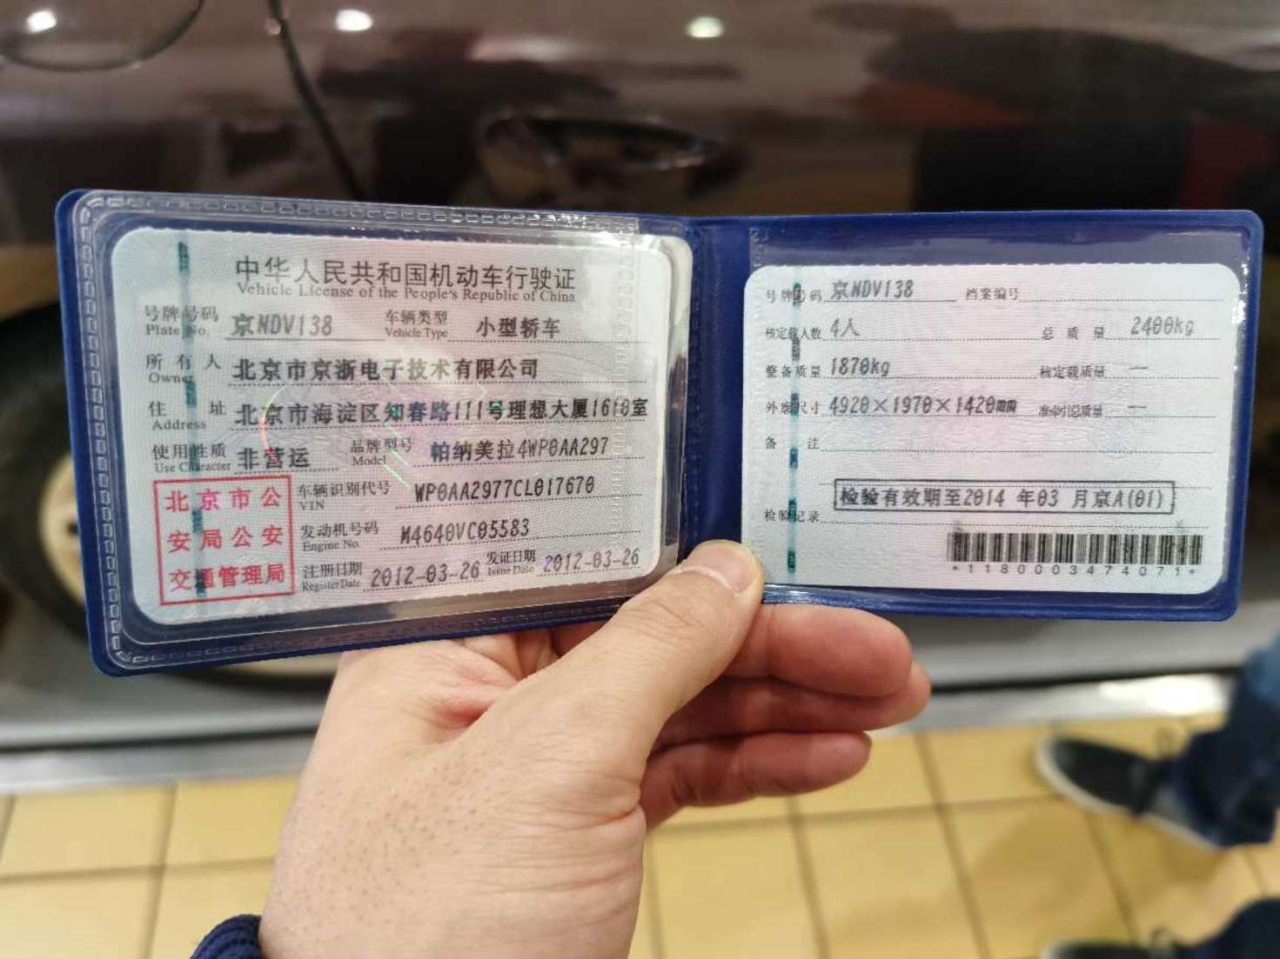 中华人民共和国机动车行驶证
Vehicle License of the People's Republic of China
号牌号码 京NDV138 车辆类型 小型轿车
Plate No. Vehicle Type
所有人 北京市京浙电子技术有限公司
Owner
住址 北京市海淀区知春路111号理想大厦1610室
Address
使用性质 非营运 品牌型号 帕纳美拉4WP0AA297
Use Character Model
北京市公
安局公安
交通管理局
车辆识别代号 WP0AA2977CL017670
VIN
发动机号码 M4640VC05583
Engine No.
注册日期 2012-03-26 发证日期 2012-03-26
Register Date Issue Date
号牌号码 京NDV138 档案编号
核定载人数 4人 总质量 2400kg
整备质量 1870kg 核定载质量 —
外廓尺寸 4920×1970×1420mm 准牵引总质量 —
备注
检验有效期至2014年03月京A(01)
检验记录
*1180003474071*